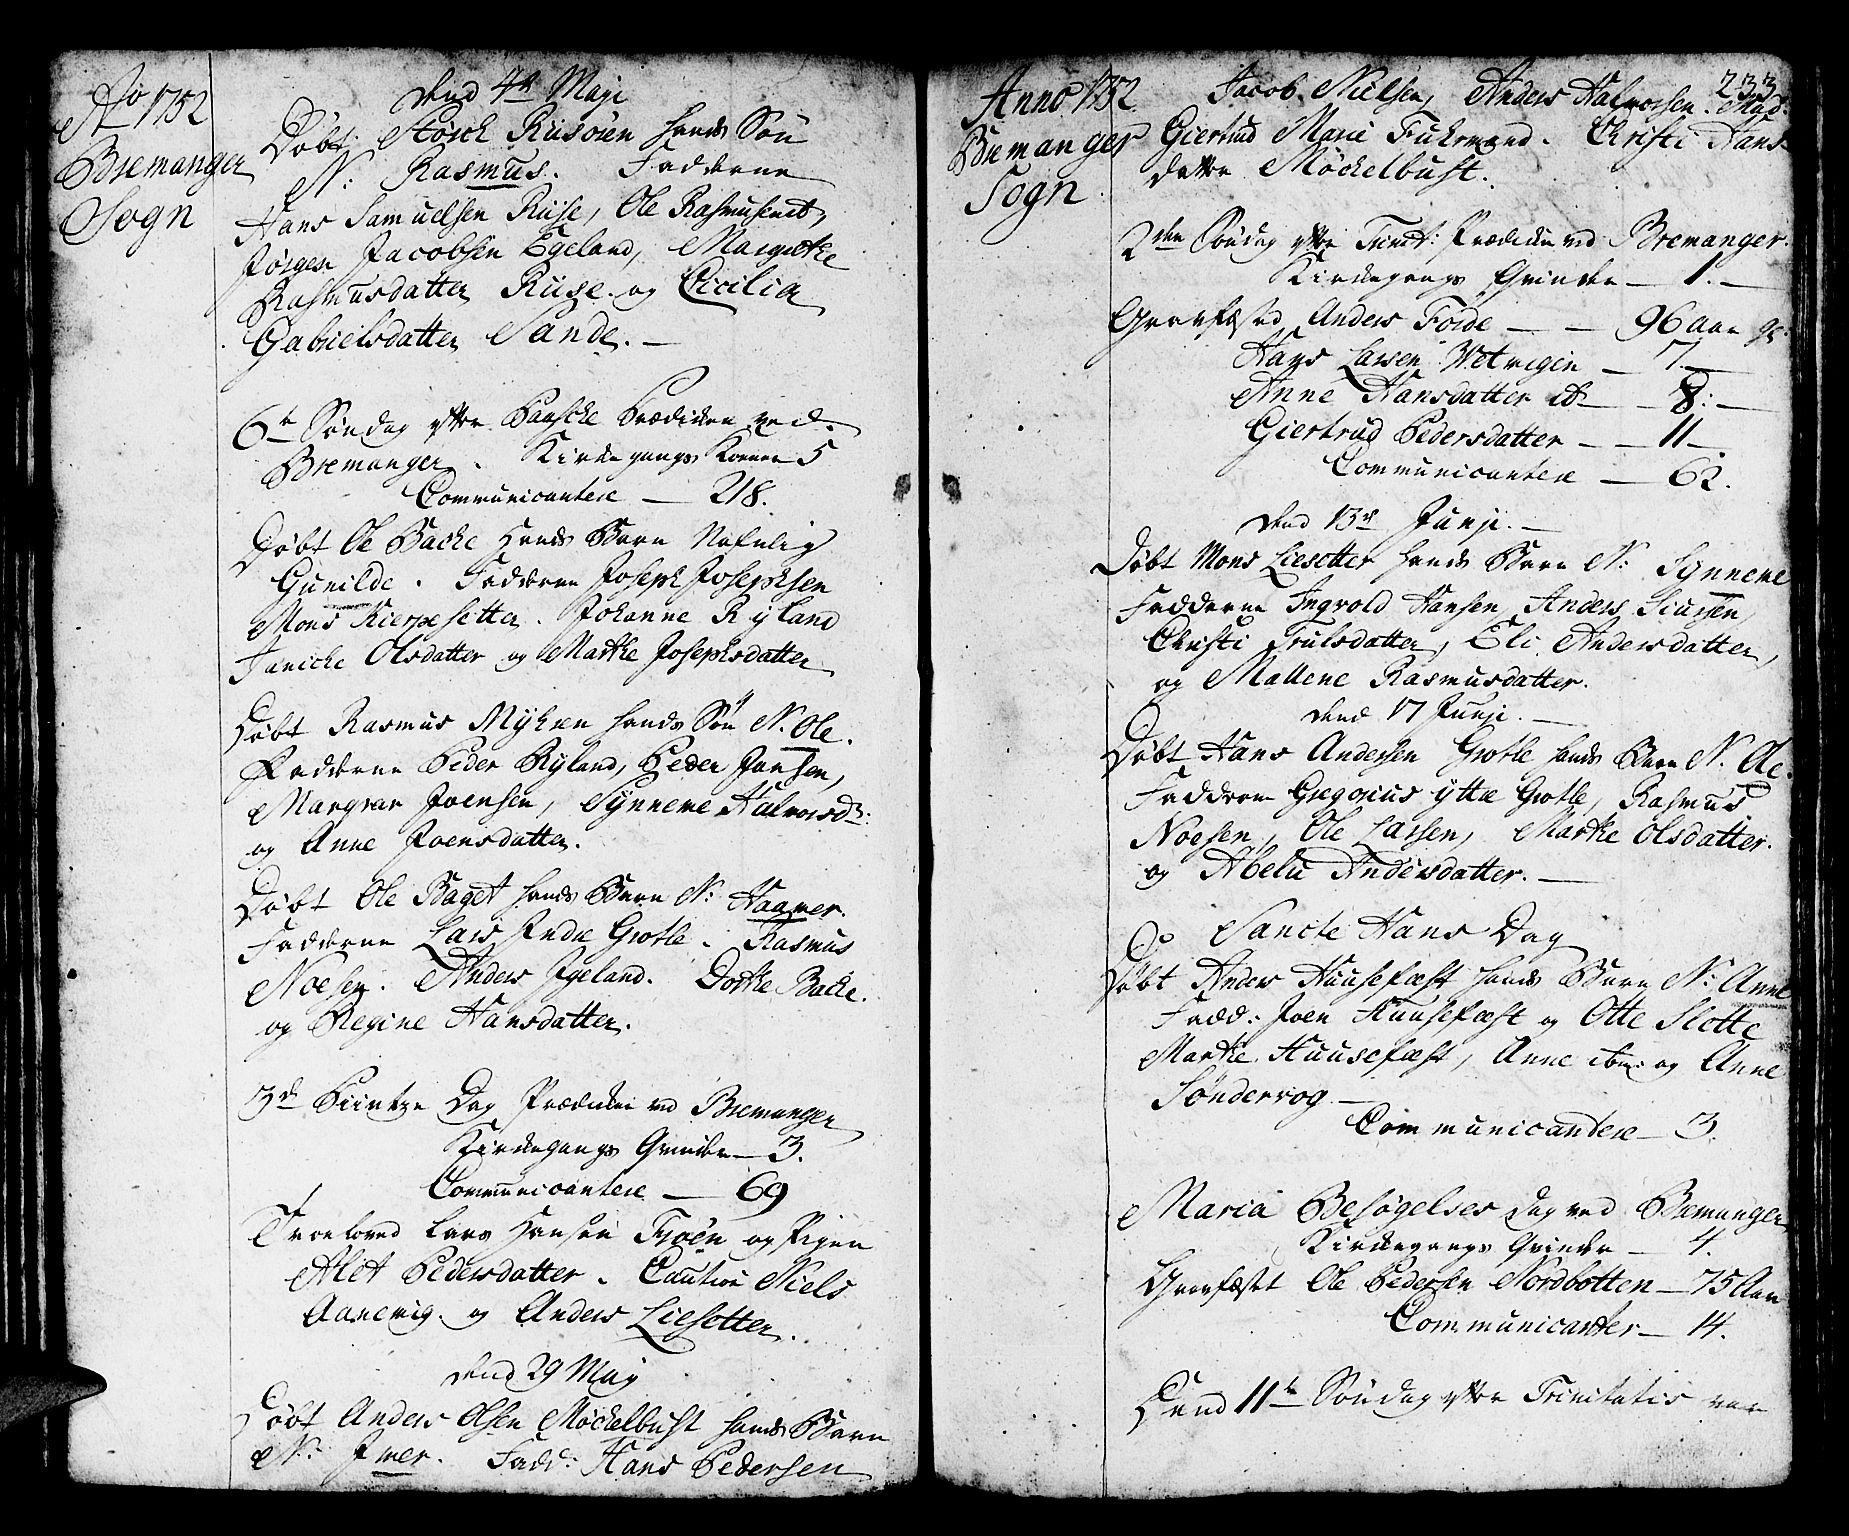 Ao 1752
Bremanger
Sogn
Dend 4de Maji
Døbt Rusøen hands Søn
N: Rasmus. Fadderne
Hans Samuelsen Ruse, Ole Rasmusen ib,
Jørgen Jacobsen Egeland, Margrethe
Rasmusdatter Ruse og Cicilia
Gabrielsdatter Sande. —
6te Søndag efter Paaske Prædiken ved
Bremanger. Kirkegangs Koner 5
Communicantere — 218.
Døbt Ole Backe hands Barn Nafnlig
Gunilde. Fadderne Joseph Josephsen
Mons Kierpesetter. Johanne Ryland
Janicke Olsdatter og Marthe Josephsdatter
Døbt Rasmus Myhren hands Søn N. Ole.
Fadderne Peder Ryland, Peder Jansen,
Joensen, Synneve Halvorsdr:
og Anne Joensdatter.
Døbt Ole Baget hands Barn N: Haaver.
Fadderne Lars Indre Grotle. Rasmus
Noesen. Anders Igeland. Dorthe Backe.
og Regine Hansdatter.
3de Pintze Dag Prædiken ved Bremanger
Kirkegangs Qvinder — 3.
Communicantere — 69
Troeloved Lars Hansen og Pigen
Alet Pedersdatter. Caution Niels
og Anders Liesetter.
Dend 29 May
Døbt Anders Olsen Møckelbust hands Barn
N: Iver. Fadd: Hans Pedersen
233
Anno 1752
Bremanger
Sogn
Jacob Nielsen, Anders Halvorsen. Mad.
Giertrud Marie Fuhrmand. Christi Hans
datter Møckelbust.
2den Søndag efter Trinit: Prædiken ved Bremanger.
Kirkegangs Qvinder — 1. —
Gravfæsted Anders Førde — — 96 aar gl.
Hans Larsen Wetvigen — 7. —
Anne Hansdatter ib — 8: —
Giertrud Pedersdatter — — 11 —
Communicantere — 62.
Dend 13de Junji. —
Døbt Mons Liesetter hands Barn N: Synneve
Fadderne Ingvold Hansen, Anders
Christi Trulsdatter, Eli Andersdatter,
og Mallene Rasmusdatter.
Dend 17 Junji. —
Døbt Hans Andersen Grotle hands Barn N. Ole.
Fadderne Gregorius yttre Grotle, Rasmus
Noesen, Ole Larsen, Marthe Olsdatter.
og Abelu Andersdatter. —
Sancte Hans Dag
Døbt Anders Huusefæst hands Barn N: Anne
Fadd: Joen Huusefæst og Otte Slotte
Marthe Huusefæst, Anne ibm: og Anne
Søndervog —
Communicantere — 3.
Maria Besøgelses Dag ved Bremanger
Kirkegangs Qvinder — 4.
Gravfæstet Ole Pedersen Nordbotten — 75 Aar
Communicanter — 14.
Dend 11te Søndag efter Trinitatis var